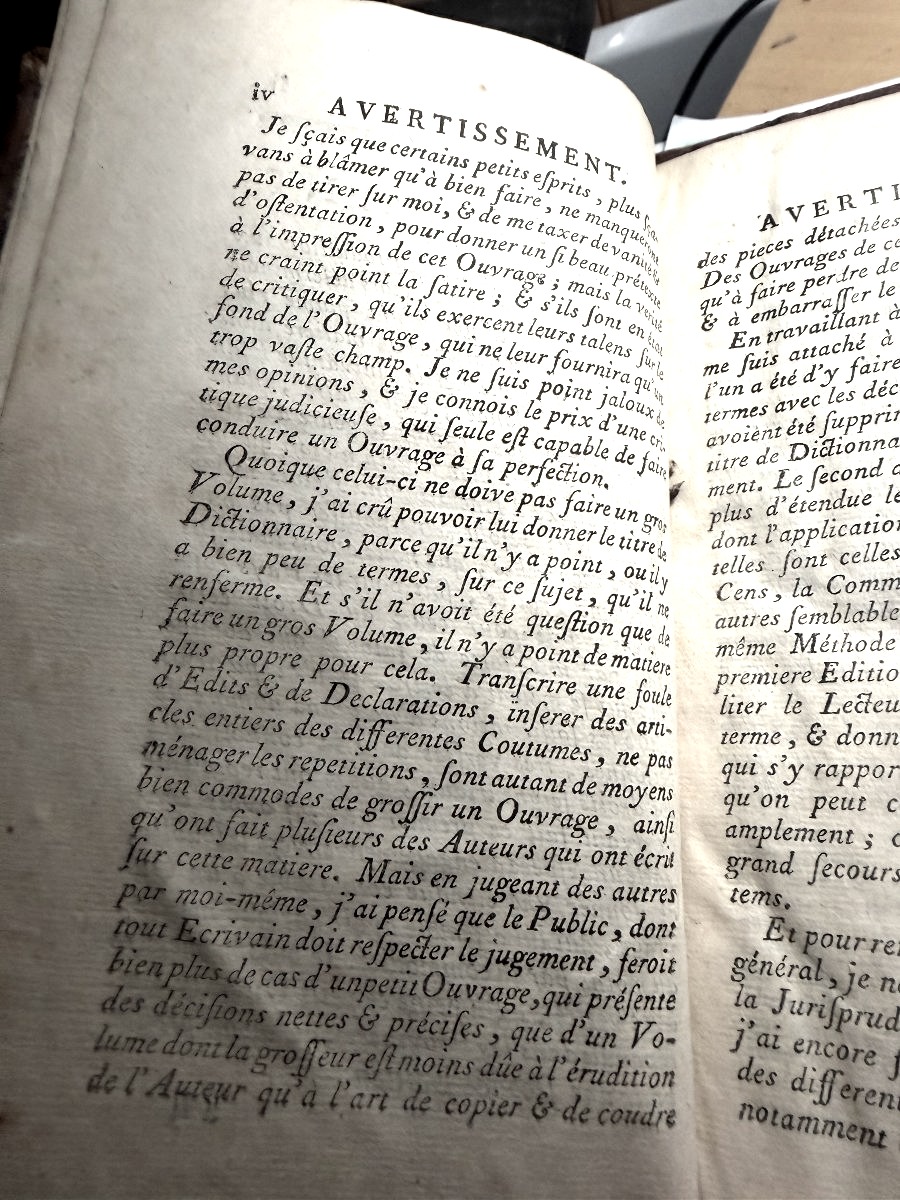 iv
AVERTISSEMENT.
Je ſçais que certains petits eſprits, plus ſça-
vans à blâmer qu'à bien faire, ne manqueront
pas de tirer ſur moi, & de me taxer de vanité &
d'oſtentation, pour donner un ſi beau prétexte
à l'impreſſion de cet Ouvrage; mais la verité
ne craint point la ſatire; & s'ils ſont en état
de critiquer, qu'ils exercent leurs talens ſur le
fond de l'Ouvrage, qui ne leur fournira qu'un
trop vaſte champ. Je ne ſuis point jaloux de
mes opinions, & je connois le prix d'une cri-
tique judicieuſe, qui ſeule eſt capable de faire
conduire un Ouvrage à ſa perfection.
Quoique celui-ci ne doive pas faire un gros
Volume, j'ai crû pouvoir lui donner le titre de
Dictionnaire, parce qu'il n'y a point, ou il y
a bien peu de termes, ſur ce ſujet, qu'il ne
renferme. Et s'il n'avoit été queſtion que de
faire un gros Volume, il n'y a point de matiere
plus propre pour cela. Tranſcrire une foule
d'Edits & de Declarations, inſerer des arti-
cles entiers des differentes Coutumes, ne pas
ménager les repetitions, ſont autant de moyens
bien commodes de groſſir un Ouvrage, ainſi
qu'ont fait pluſieurs des Auteurs qui ont écrit
ſur cette matiere. Mais en jugeant des autres
par moi-même, j'ai penſé que le Public, dont
tout Ecrivain doit reſpecter le jugement, feroit
bien plus de cas d'un petit Ouvrage, qui préſente
des déciſions nettes & préciſes, que d'un Vo-
lume dont la groſſeur eſt moins dûe à l'érudition
de l'Auteur qu'à l'art de copier & de coudre
AVERTI
des pieces détachées
Des Ouvrages de ce
qu'à faire perdre de
& à embarraſſer le
En travaillant à
me ſuis attaché à
l'un a été d'y faire
termes avec les déc
avoient été ſupprim
titre de Dictionna
ment. Le ſecond a
plus d'étendue le
dont l'application
telles ſont celles
Cens, la Comm
autres ſemblable
même Méthode
premiere Editio
liter le Lecteu
terme, & donn
qui s'y rappor
qu'on peut c
amplement; c
grand ſecours
tems.
Et pour ren
général, je n
la Juriſprud
j'ai encore f
des different
notamment